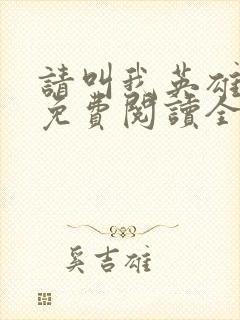 請叫我英雄
免費閱讀全
奚吉雄